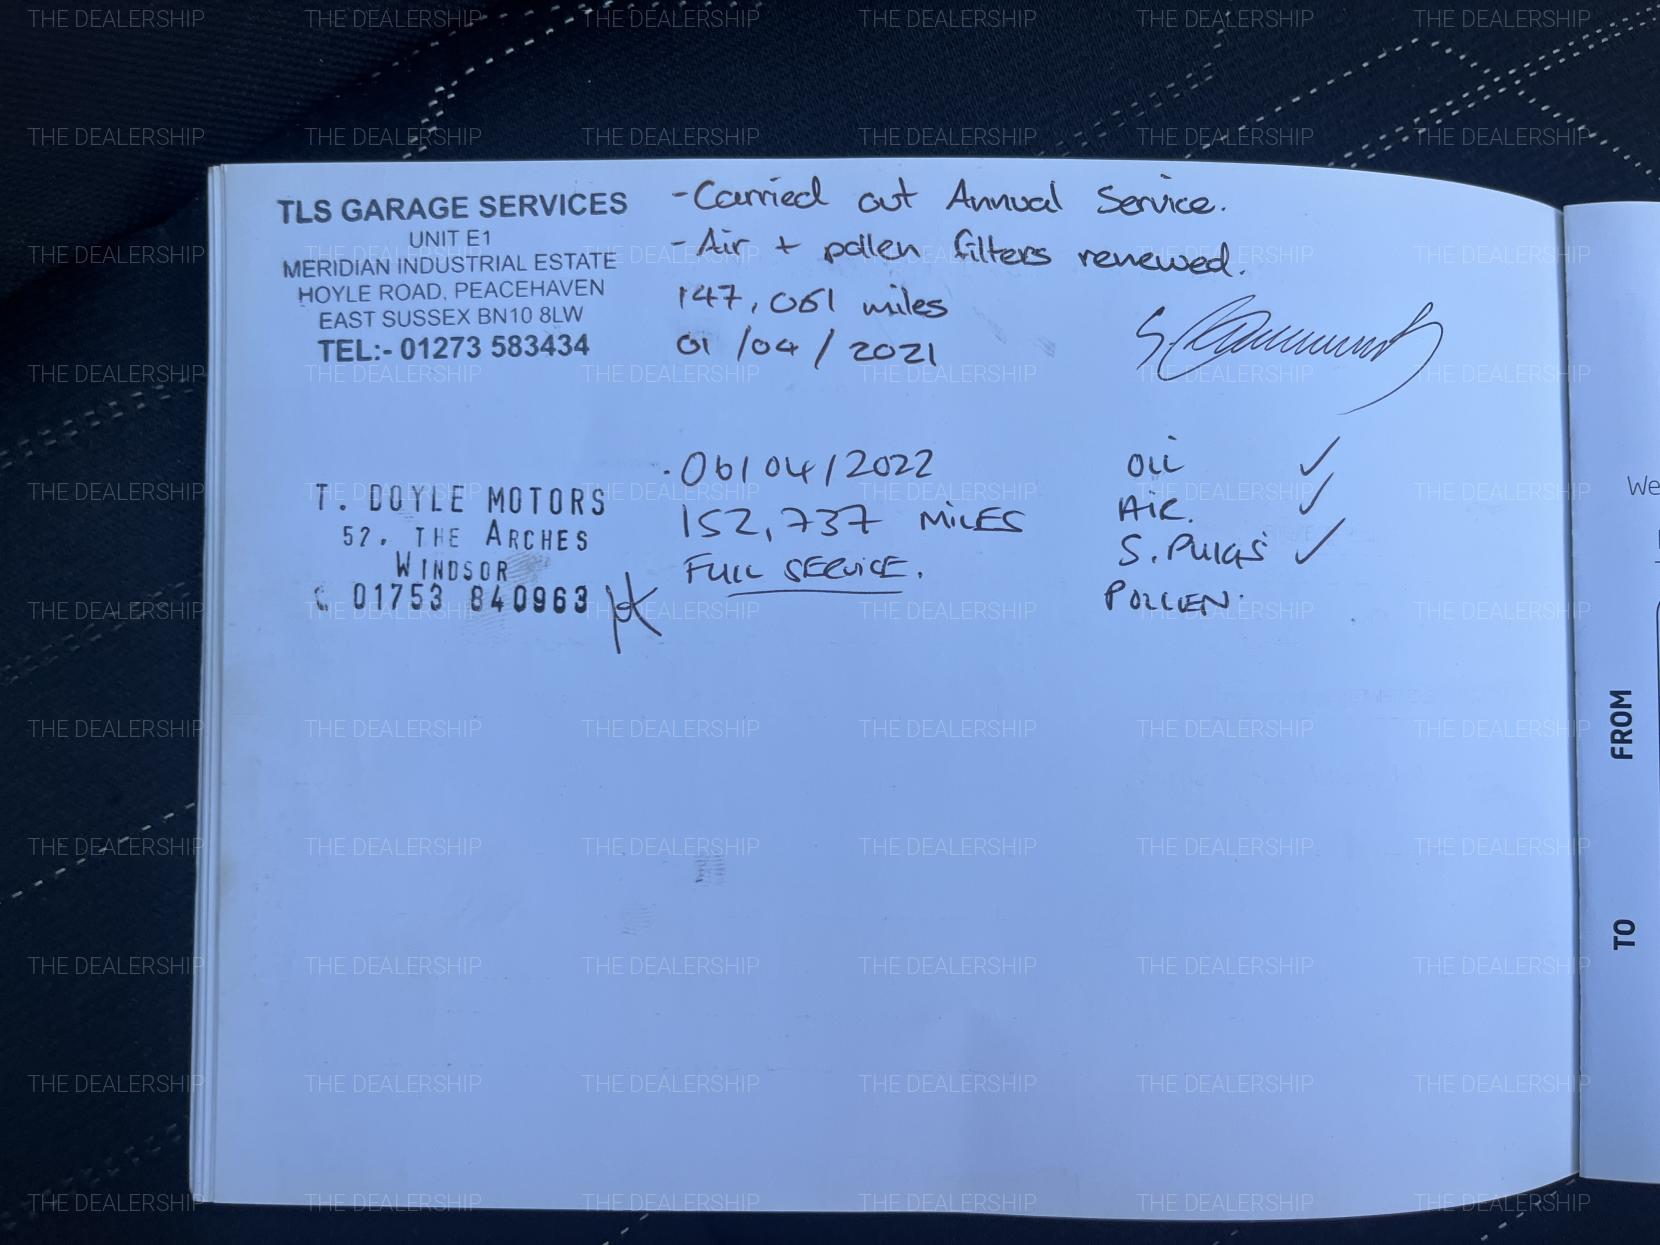 TLS GARAGE SERVICES
UNIT E1
MERIDIAN INDUSTRIAL ESTATE
HOYLE ROAD, PEACEHAVEN
EAST SUSSEX BN10 8LW
TEL:- 01273 583434
-Carried out Annual Service.
-Air + pollen filters renewed.
147,061 miles
01/04/2021
T. DOYLE MOTORS
52, THE ARCHES
WINDSOR
01753 840963
06/04/2022
152,737 MILES
FULL SERVICE.
OIL ✓
AIR. ✓
S. PLUGS ✓
POLLEN.
We
FROM
TO
THE DEALERSHIP